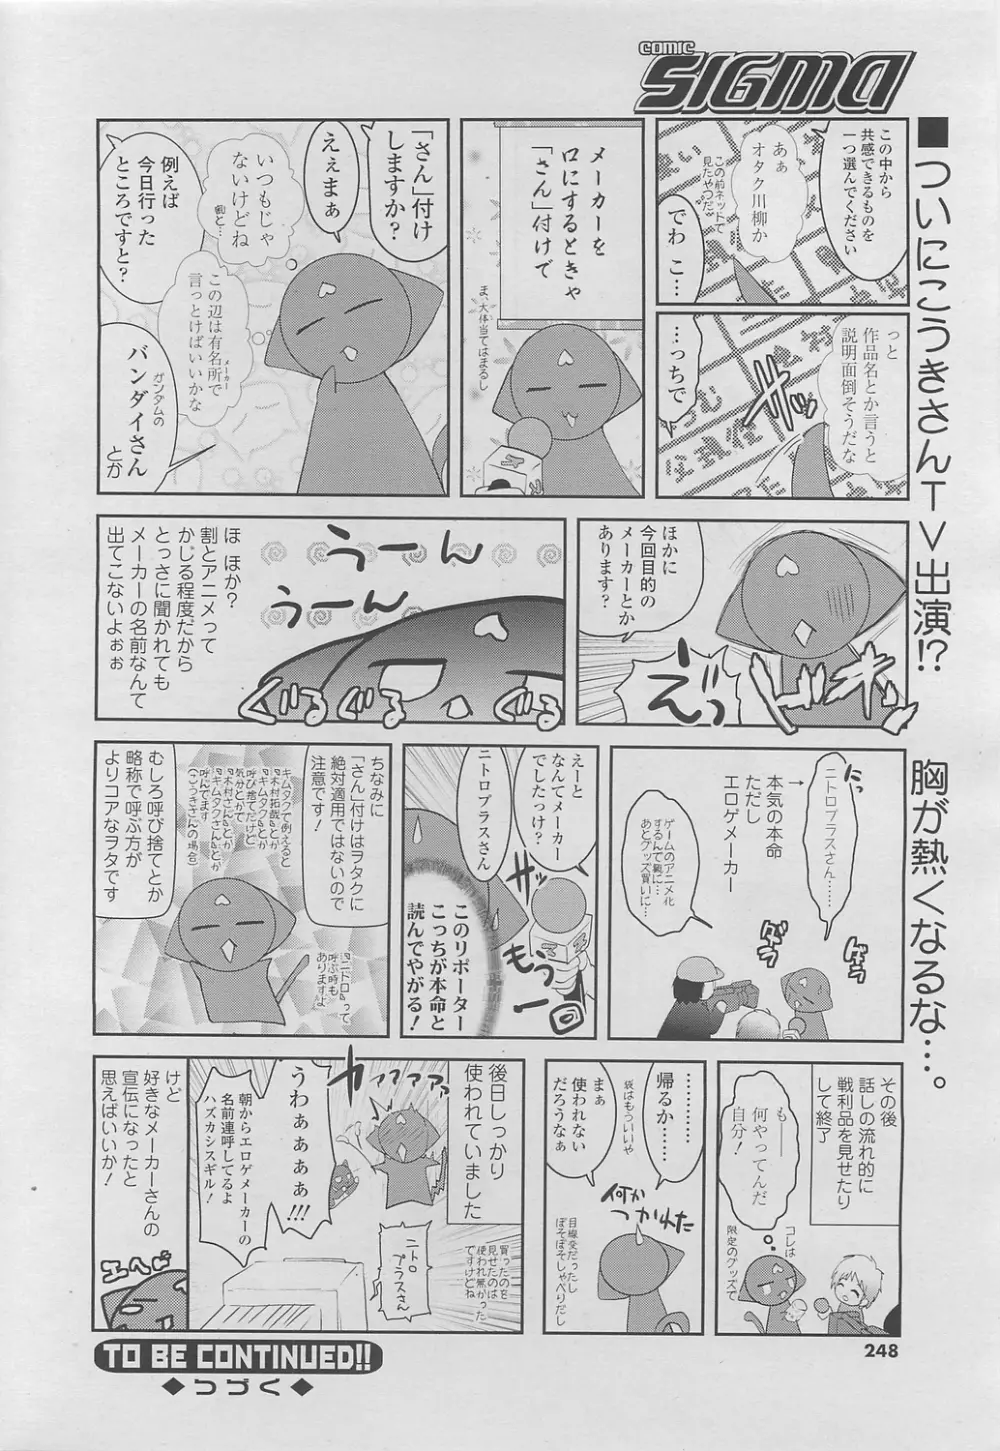 COMIC
SIGMA
■ついにこうきさんTV出演!?
胸が熱くなるな…。
この中から
共感できるものを
一つ選んでください
あぁ
オタク川柳か
この前ネットで
見たやつだ
でわ こ…
っと
作品名とか言うと
説明面倒そうだな
…っちで
メーカーを
口にするときゃ
「さん」付けで
ま、大体当てはまるし
「さん」付け
しますか?
えぇまぁ
いつもじゃ
ないけどね
割と…
この辺は有名所で
メーカー
言っとけばいいかな
例えば
今日行った
ところですと?
ガンダムの
バンダイさん
とか
ほかに
今回目的の
メーカーとか
あります?
えっ
ドキッ
うーん
うーん
ぐるぐるぐる
ほ ほか?
割とアニメって
かじる程度だから
とっさに聞かれても
メーカーの名前なんて
出てこないよぉぉ
にっ
ニトロプラスさん……
→
本気の本命
ただし
エロゲメーカー
ゲームのアニメ化
するんで気に…
あとグッズ買いに…
ダラ
ダラ
えーと
なんてメーカー
でしたっけ?
ニトロプラスさん
もう一回
このリポーター
こっちが本命と
読んでやがる!
ちなみに
「さん」付けはヲタクに
絶対適用ではないので
注意です!
キムタクで例えると
『木村拓哉』とか
『キムタク』とか
呼び捨てだけど
気分とかで
『木村さん』とか
『キムタクさん』とか
呼んでます
(こうきさんの場合)
『ニトロ』って
呼ぶ時も
ありますよ
むしろ呼び捨てとか
略称で呼ぶ方が
よりコアなヲタです
その後
話しの流れ的に
戦利品を見せたり
して終了
も——
何やってんだ
自分!
コレは
限定のグッズで
帰るか……
袋はもういいや
まぁ
使われない
だろうなぁ
何か
つかれた
目線変だったし
ぼそぼそしゃべりだし
後日しっかり
使われていました
買ったのを
見せたのは
使われ無かった
ですけどね
カァァァァ
うわぁぁぁぁ!!!
朝からエロゲメーカーの
名前連呼してるよ
ハズカシスギル!
ニトロ
プラスさん
けど
好きなメーカーさんの
宣伝になったと
思えばいいか!
エヘヘ
TO BE CONTINUED!!
◆つづく◆
248